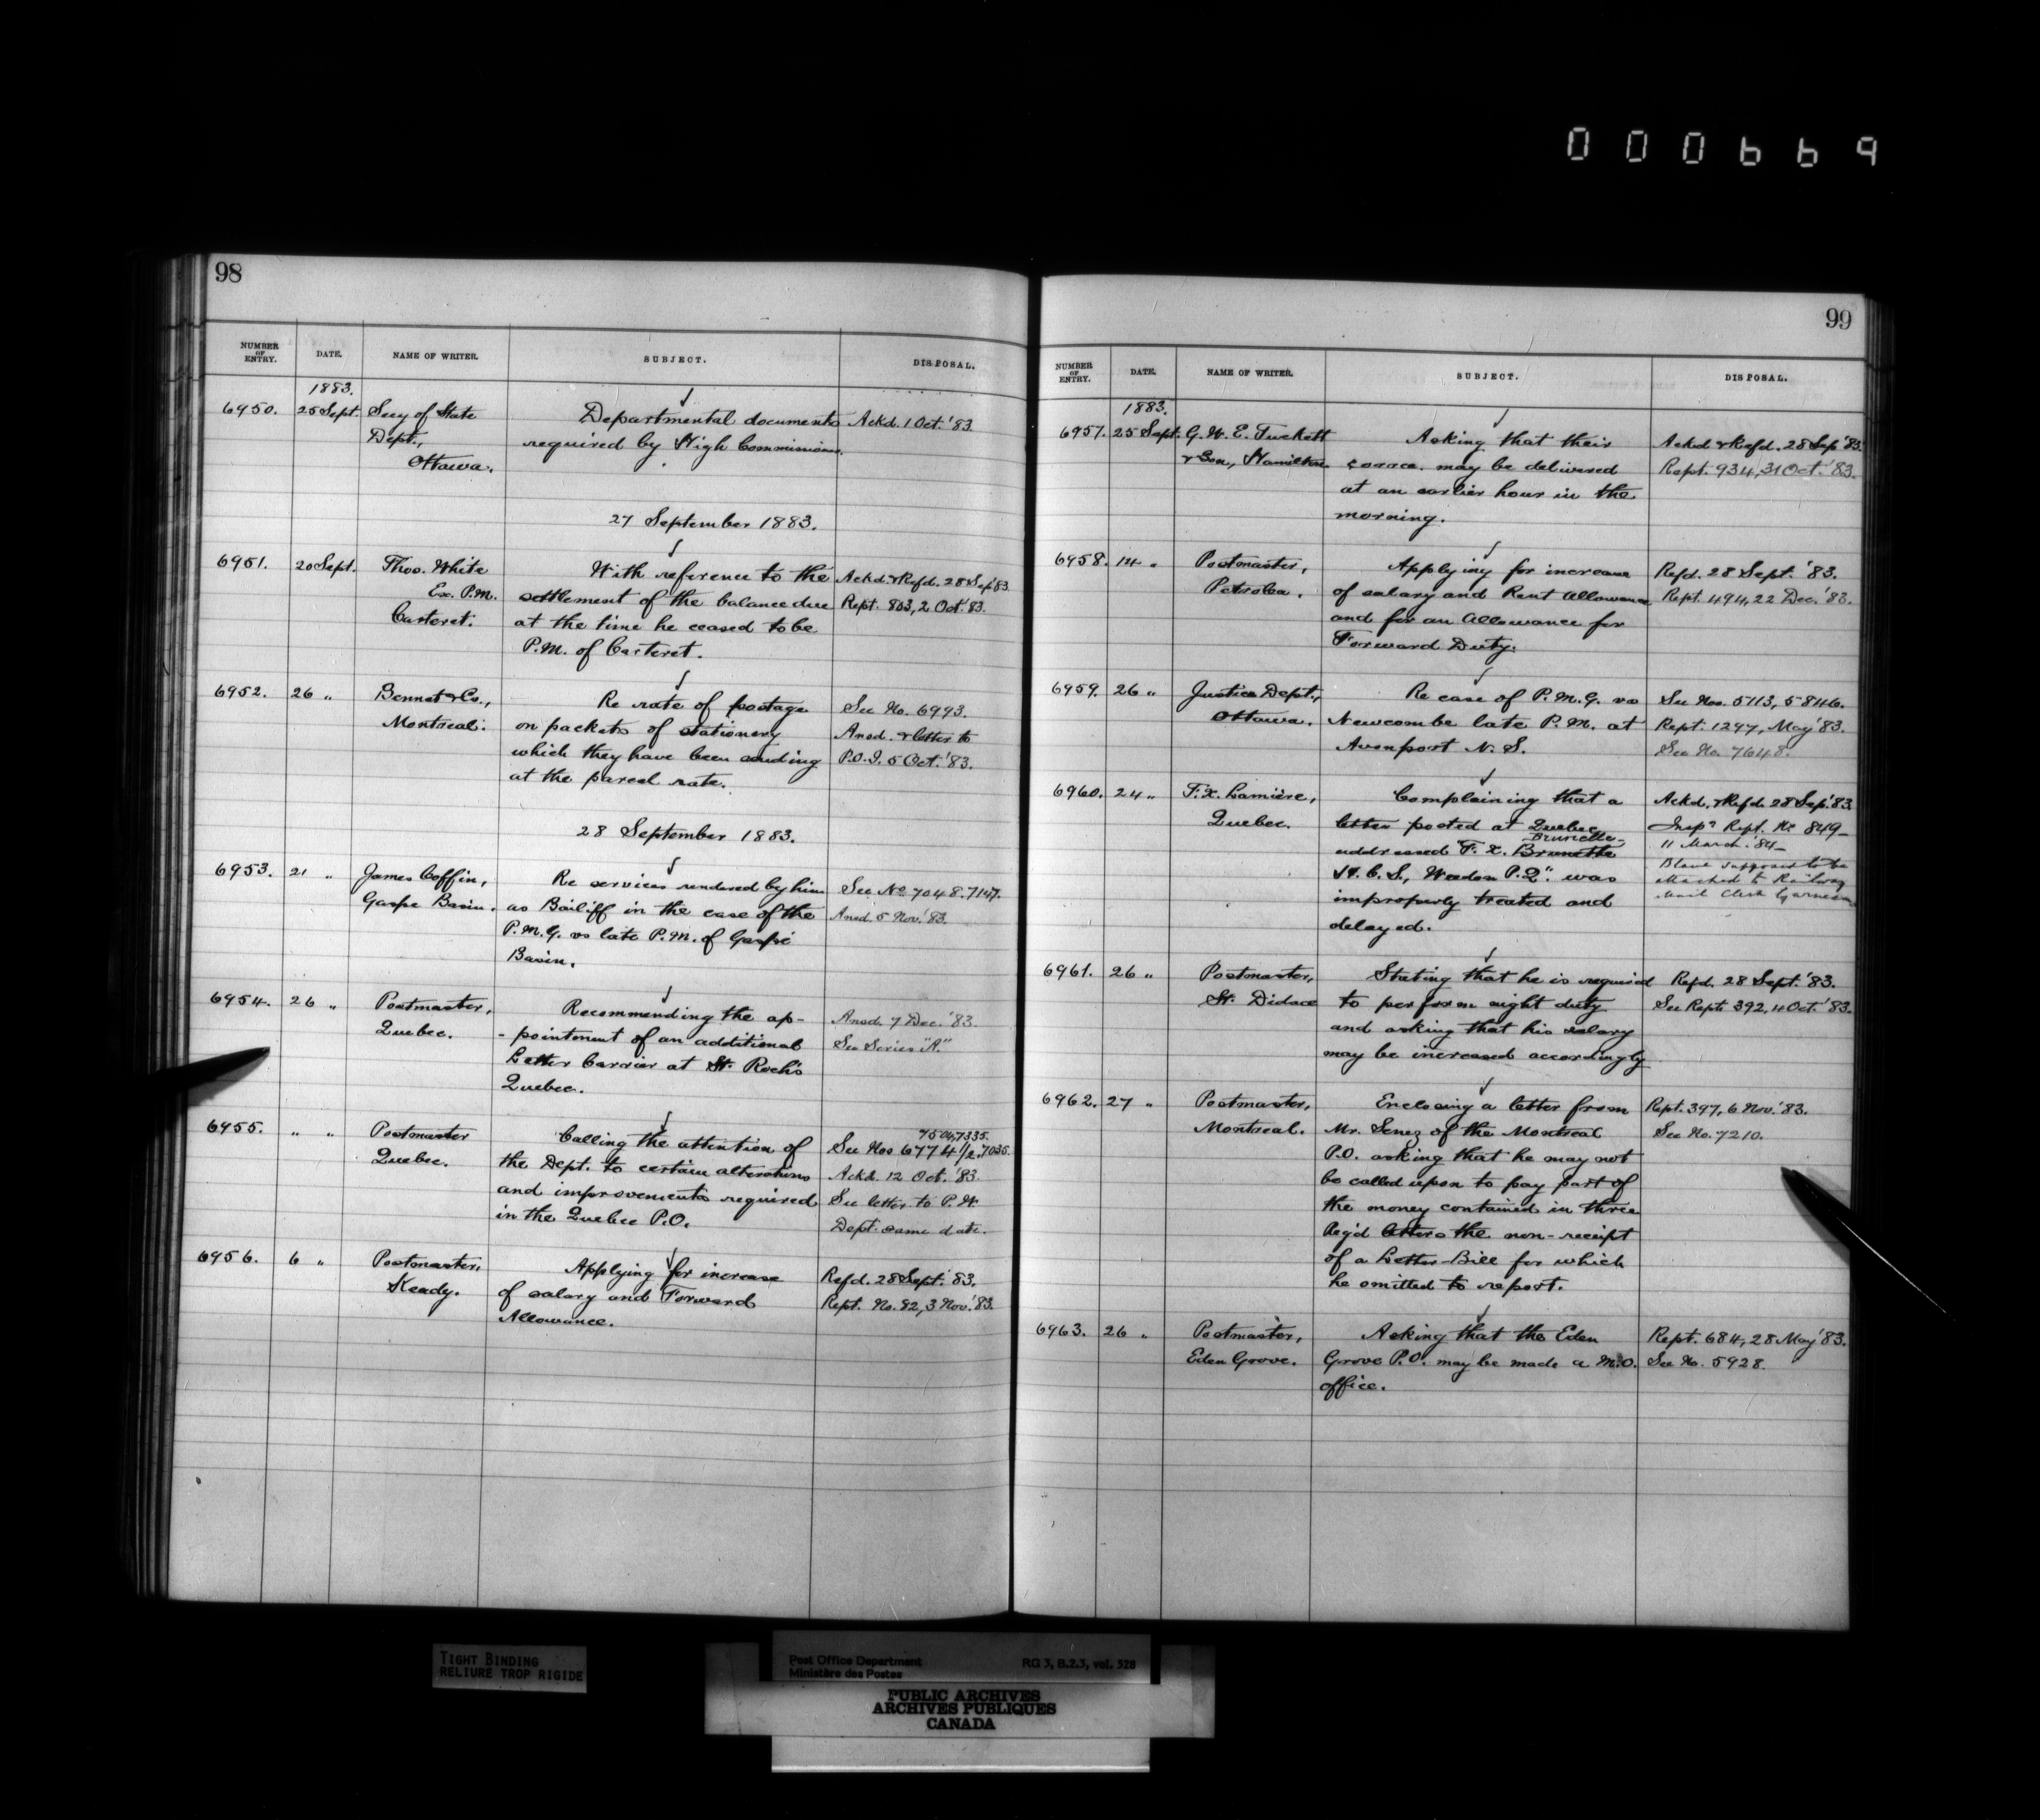 000669
98
NUMBER OF ENTRY. DATE. NAME OF WRITER. SUBJECT. DISPOSAL.
1883.
6950. 25 Sept. Secy of State Departmental documents Ackd. 1 Oct. '83.
Dept., required by High Commissioner.
Ottawa.
27 September 1883.
6951. 20 Sept. Thos. White With reference to the Ackd. & Refd. 28 Sep '83.
Ex. P.M. settlement of the balance due Rept. 803, 2 Oct. '83.
Carteret. at the time he ceased to be
P.M. of Carteret.
6952. 26 " Bennet & Co., Re rate of postage See No. 6993.
Montreal. on packets of stationery Ansd. & letter to
which they have been sending P.O.I. 5 Oct. '83.
at the parcel rate.
28 September 1883.
6953. 21 " James Coffin, Re services rendered by him See No. 7048. 7147.
Gaspe Basin. as Bailiff in the case of the Ansd. 5 Nov. '83.
P.M.G. vs late P.M. of Gaspé
Basin.
6954. 26 " Postmaster, Recommending the ap- Ansd. 7 Dec. '83.
Quebec. -pointment of an additional See Series "A."
Letter Carrier at St. Roch's
Quebec.
7504, 7335.
6955. " " Postmaster Calling the attention of See Nos 6774 1/2. 7035.
Quebec. the Dept. to certain alterations Ackd. 12 Oct. '83.
and improvements required See letter to P.W.
in the Quebec P.O. Dept. same date.
6956. 6 " Postmaster, Applying for increase Refd. 28 Sept. '83.
Keady. of salary and Forward Rept. No. 82, 3 Nov. '83.
Allowance.
99
NUMBER OF ENTRY. DATE. NAME OF WRITER. SUBJECT. DISPOSAL.
1883.
6957. 25 Sept. G. W. E. Tuckett Asking that their Ackd & Refd. 28 Sep '83.
& Son, Hamilton corrce. may be delivered Rept. 934, 31 Oct. '83.
at an earlier hour in the
morning.
6958. 14 " Postmaster, Applying for increase Refd. 28 Sept. '83.
Petrolea. of salary and Rent Allowance Rept. 494, 22 Dec. '83.
and for an Allowance for
Forward Duty.
6959. 26 " Justice Dept., Re case of P.M.G. vs See Nos. 5113, 5846.
Ottawa. Newcombe late P.M. at Rept. 1297, May '83.
Avonport N.S. See No. 7648.
6960. 24 " F.X. Lamière, Complaining that a Ackd. & Refd. 28 Sep. '83
Quebec. letter posted at Quebec Inspr Rept. No 849-
Brunelle-
addressed "F. X. Brunette 11 March '84-
H.C.S., Weedon P.Q." was Blame supposed to be
improperly treated and attached to Railway
delayed. Mail Clerk
6961. 26 " Postmaster, Stating that he is required Refd. 28 Sept. '83.
St. Didace to perform night duty See Rept. 392, 11 Oct. '83.
and asking that his salary
may be increased accordingly
6962. 27 " Postmaster, Enclosing a letter from Rept. 397, 6 Nov. '83.
Montreal. Mr. Senez of the Montreal See No. 7210.
P.O. asking that he may not
be called upon to pay part of
the money contained in three
Reg'd letters the non-receipt
of a Letter Bill for which
he omitted to report.
6963. 26 " Postmaster, Asking that the Eden Rept. 684, 28 May '83.
Eden Grove. Grove P.O. may be made a M.O. See No. 5928.
office.
TIGHT BINDING
RELIURE TROP RIGIDE
Post Office Department RG 3, B.2.3, vol. 528
Ministère des Postes
PUBLIC ARCHIVES
ARCHIVES PUBLIQUES
CANADA